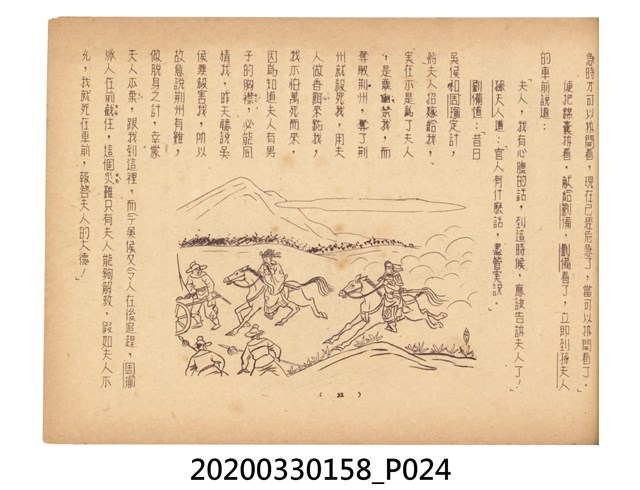 急時才可以拆開看,現在已經危急了,當可以拆開看了。
便把錦囊拆看,獻給劉備,劉備看了,立即到孫夫人
的車前說道:
「夫人,我有心腹的話,到這時候,應該告訴夫人了!」
孫夫人道:「官人有什麽話,盡管實說。」
劉備道:「昔日
吳侯和周瑜定計,
將夫人招嫁給我,
实在亦是爲了夫人
,是要幽禁我,而
奪取荆州,奪了荆
州就殺死我,用夫
人做香餌來釣我,
我亦怕萬死而來,
因爲知道夫人有男
子的胸襟,必能同
情我,昨天聽說吳
侯要殺害我,所以
故意說荆州有難,
做脫身之計,幸蒙
夫人亦棄,跟我到這裡,而今吳侯又令人在後追趕,周瑜
派人在前截住,這個災難只有夫人能夠解放,假如夫人亦
允,我就死在車前,報答夫人的大德!」
(22)
20200330158_P024